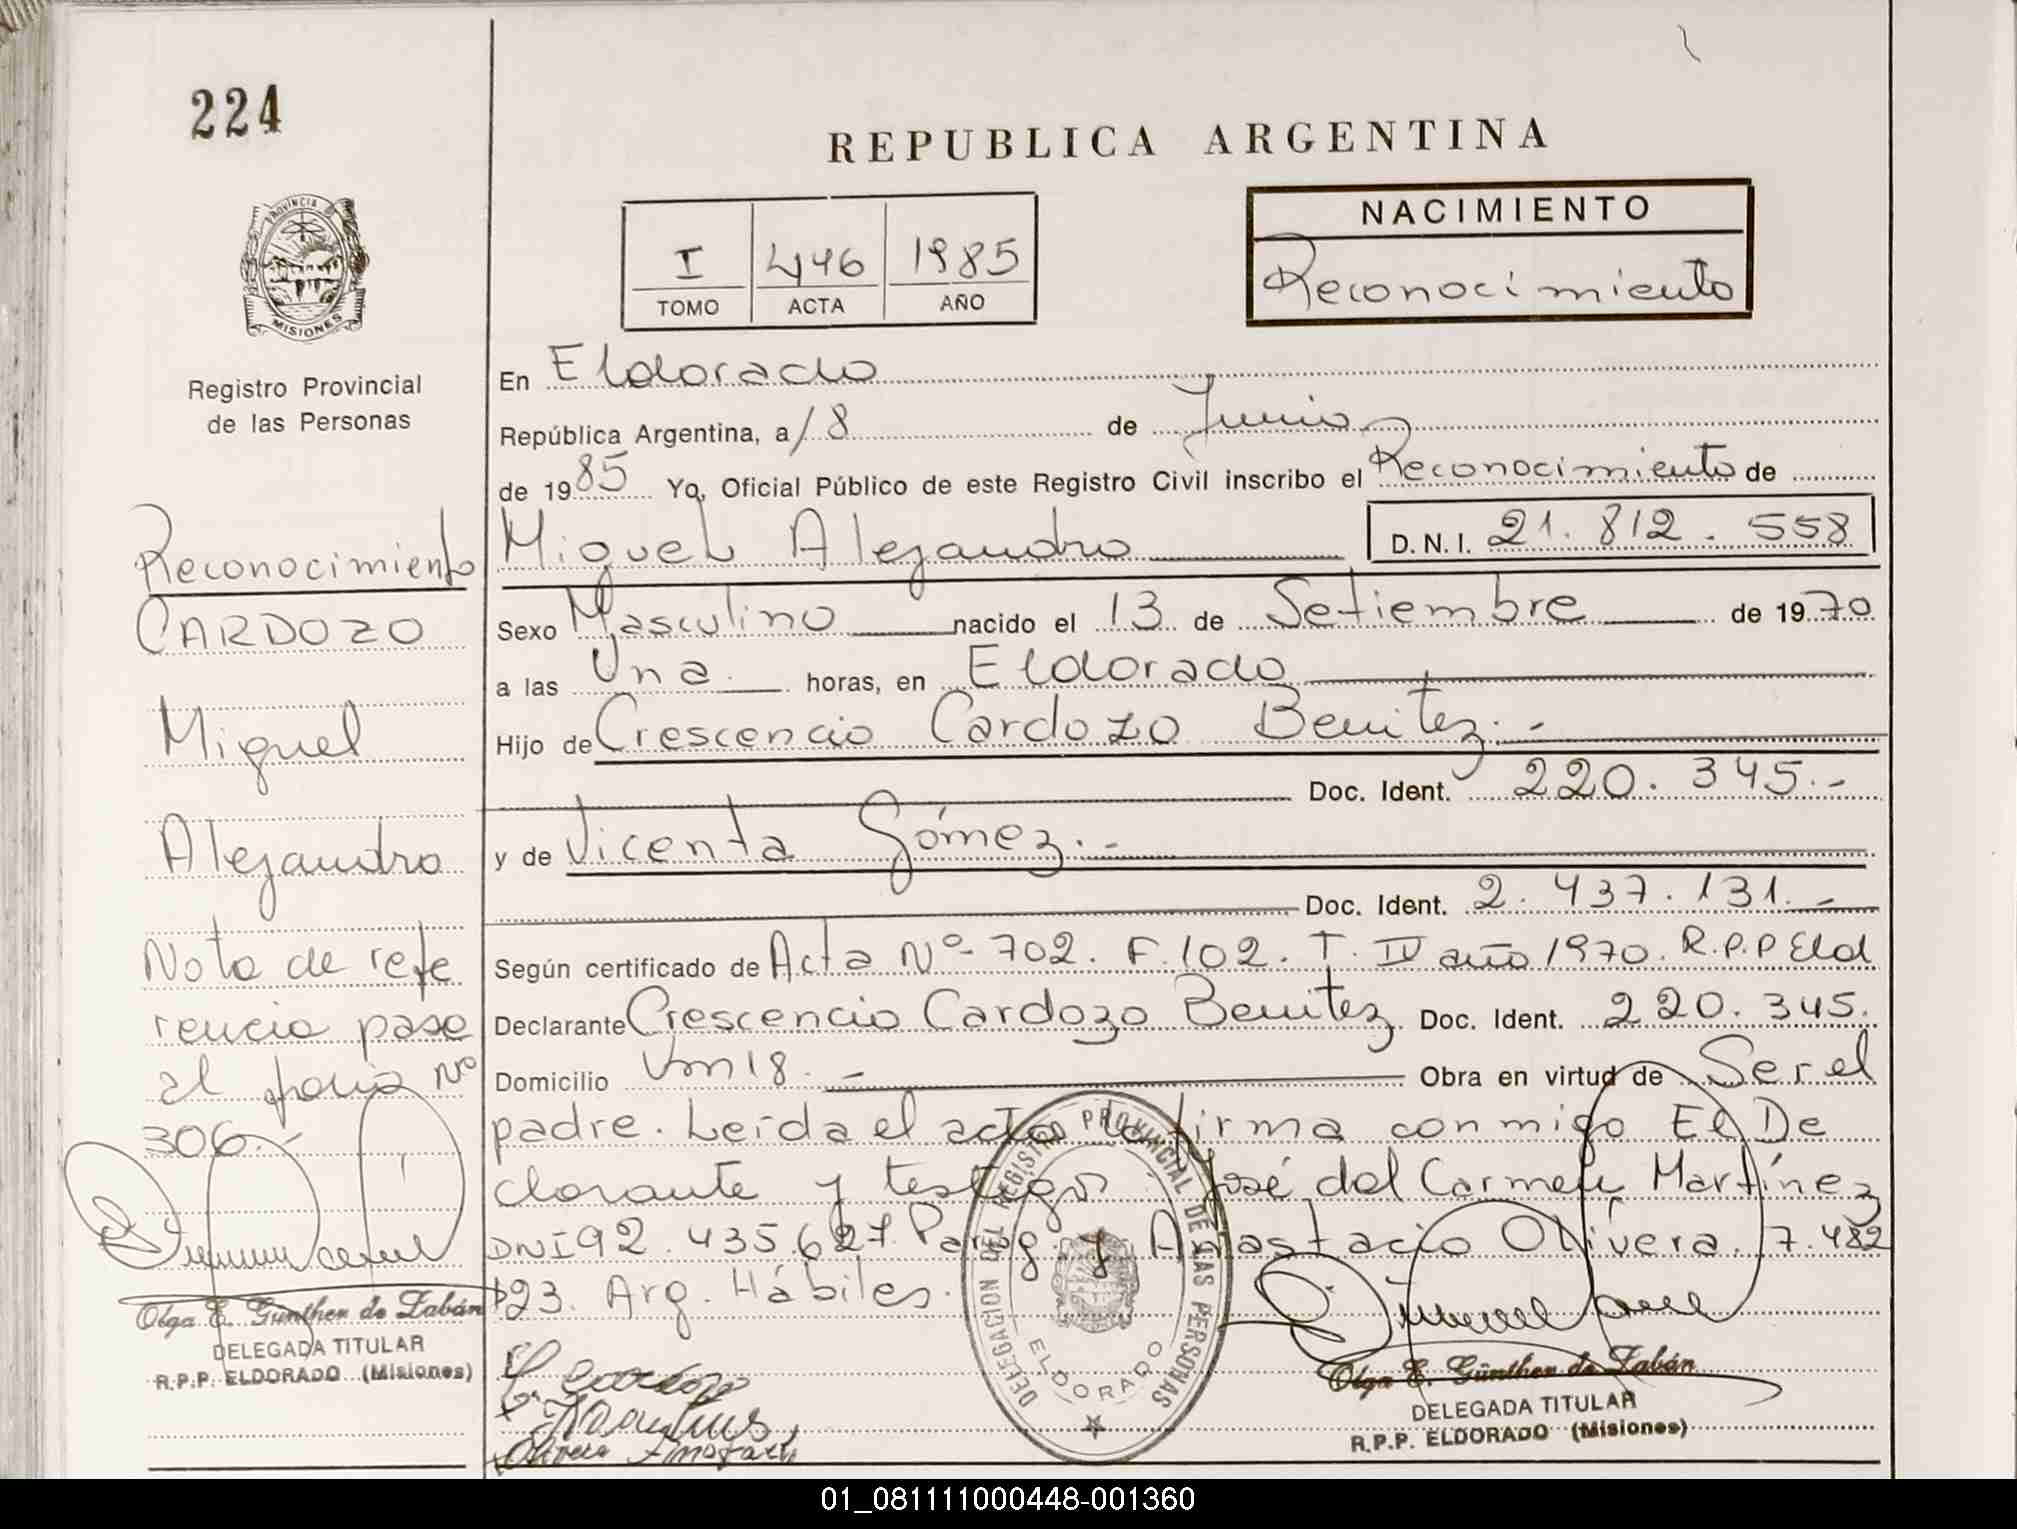 224
REPUBLICA ARGENTINA
PROVINCIA D
MISIONES
Registro Provincial
de las Personas
I 446 1985
TOMO ACTA AÑO
NACIMIENTO
Reconocimiento
En Eldorado
República Argentina, a 18 de Junio
de 1985 Yo, Oficial Público de este Registro Civil inscribo el Reconocimiento de
Miguel Alejandro D.N.I. 21.812.558
Sexo Masculino nacido el 13 de Setiembre de 1970
a las Una horas, en Eldorado
Hijo de Crescencio Cardozo Benitez.-
Doc. Ident. 220.345.-
y de Vicenta Gómez.-
Doc. Ident. 2.437.131.-
Según certificado de Acta Nº 702. F.102. T. IV año 1970. R.P.P Eld
Declarante Crescencio Cardozo Benitez. Doc. Ident. 220.345.
Domicilio Km 18.- Obra en virtud de Ser el
padre. Leída el acta la firma conmigo El De
clarante y testigos José del Carmen Martínez
DNI 92.435.627 Parag. y Anastacio Olivera. 7.482
123. Arg. Hábiles.
Reconocimiento
CARDOZO
Miguel
Alejandro
Nota de refe
rencia pase
al folio Nº
306.-
Olga E. Günther de Zabán
DELEGADA TITULAR
R.P.P. ELDORADO (Misiones)
DELEGACION DEL REGISTRO PROVINCIAL DE LAS PERSONAS
ELDORADO
Olga E. Günther de Zabán
DELEGADA TITULAR
R.P.P. ELDORADO (Misiones)
01_081111000448-001360